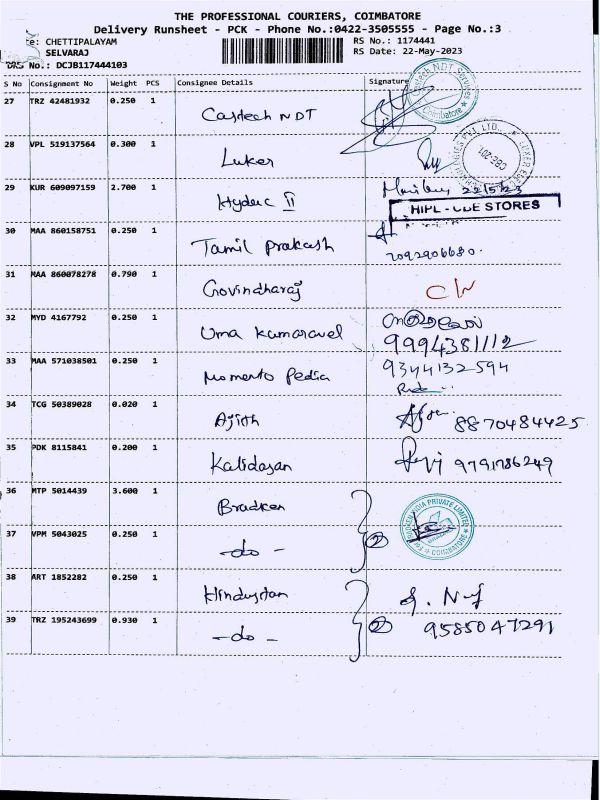 THE PROFESSIONAL COURIERS, COIMBATORE
Delivery Runsheet - PCK - Phone No.:0422-3505555 - Page No.:3
e: CHETTIPALAYAM RS No.: 1174441
SELVARAJ RS Date: 22-May-2023
DRS No.: DCJB117444103
S No Consignment No Weight PCS Consignee Details Signature
27 TRZ 42481932 0.250 1 Castech NDT
Castech NDT Services Coimbatore
28 VPL 519137564 0.300 1 Luker
CBE-201
29 KUR 609097159 2.700 1 Hydec II 22/5/23
HIPL - CBE STORES
30 MAA 860158751 0.250 1 Tamil Prakash 7092906680.
31 MAA 860078278 0.790 1 Govindharaj
32 MYD 4167792 0.250 1 Uma Kamaravel
9994381112
33 MAA 571038501 0.250 1 Momento Pedia 9344132594
34 TCG 50389028 0.020 1 Ajith 8870484425
35 PDK 8115841 0.200 1 Kalidasan 9791786249
36 MTP 5014439 3.600 1 Bradken
BRADKEN INDIA PRIVATE LIMITED COIMBATORE
37 VPM 5043025 0.250 1 -do- 2
38 ART 1852282 0.250 1 Hindustan
39 TRZ 195243699 0.930 1 -do- 2 9585047291